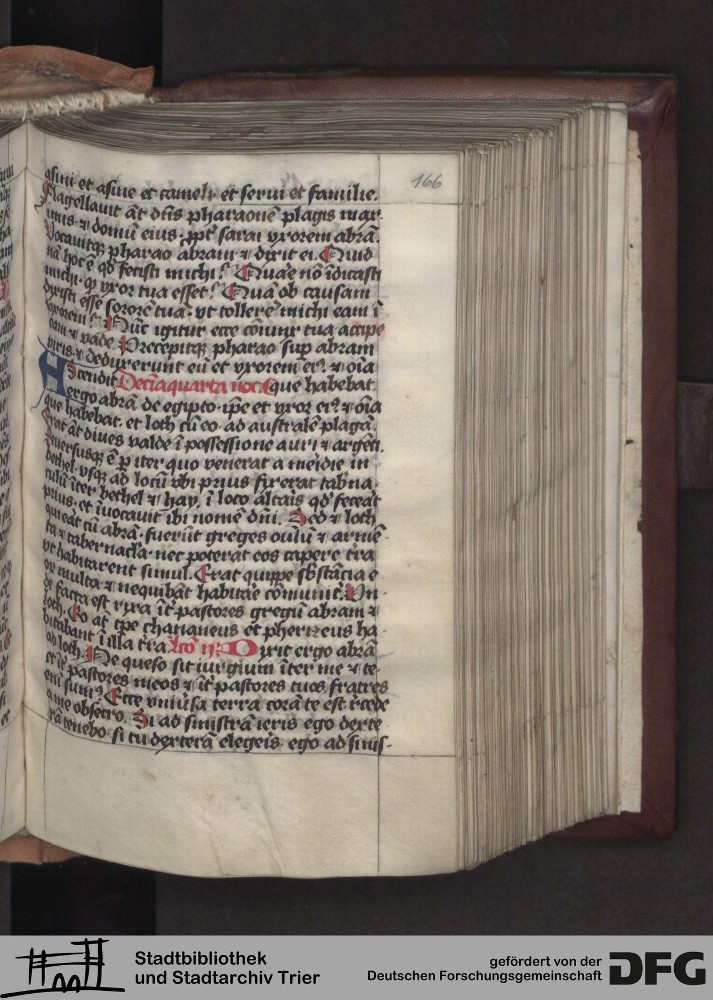 asini et asine et cameli et serui et familie.
Flagellauit āt dn̄s pharaonē plagis max
imis ⁊ domū eius ꝓpt̄ sarai vxorem abrā.
Vocauitqꝫ pharao abram ⁊ dixit ei. Quid
nā hoc ē qd̄ fecisti michi? Quare nō īdicasti
michi. qꝫ vxor tua esset? Quā ob causam
dixisti esse sororē tuā. vt tollerē michi eam ī
vxorem? Nūc igitur ecce cōiunx tua accipe
eam ⁊ vade. Precepitqꝫ pharao sup abram
viris. ⁊ deduxerunt eū et vxorem eiꝰ. ⁊ oīa
Ascendit Decīa quarta noc. que habebat.
ergo abrā de egipto. ip̄e et vxor eiꝰ. ⁊ oīa
que habebat. et loth cū eo. ad australē plagā.
Erat āt diues valde ī possessione auri ⁊ argēti.
Reuersusqꝫ ē ꝑ iter quo venerat a meidie in
bethel. vsqꝫ ad locū vbi prius fixerat tab̄na
culū īter bethel ⁊ hay. ī loco altaris qd̄ feceāt
prius. et īuocauit ibi nomē dn̄i. Sed ⁊ loth
qui eāt cū abrā. fuerūt greges ouiū ⁊ armē
ta ⁊ tabernacl̄a. nec poterat eos capere t̄ra
vt habitarent simul. Erat quippe sb̄stācia e
or̄ multa ⁊ nequibāt habitāe cōmunit̄. Vn
de facta est rixa īt̄ pastores gregū abram ⁊
loth. Eo āt tp̄e chananeus et pherizeus ha
bitabant ī illa t̄ra. Lcō ij. Dixit ergo abrā
ad loth. Ne queso sit iurgium īter me ⁊ te.
et īt̄ pastores meos ⁊ īt̄ pastores tuos. fratres
eni sumꝰ. Ecce vniūsa terra corā te est. r̄cede
a me obsecro. Si ad sinistrā ieris ego dexte
rā tenebo. si tu dexterā elegeis. ego ad sinis-
166
Stadtbibliothek
und Stadtarchiv Trier
gefördert von der
Deutschen Forschungsgemeinschaft
DFG